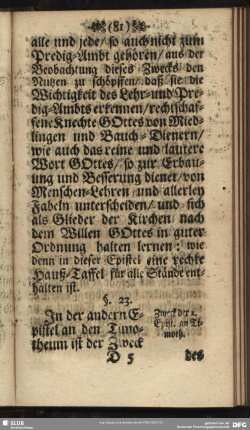 (81)
alle und jede / so auch nicht zum
Predig-Ambt gehören / aus der
Beobachtung dieses Zwecks den
Nutzen zu schöpffen / daß sie die
Wichtigkeit des Lehr- und Pre-
dig-Ambts erkennen / rechtschaf-
fene Knechte GOttes von Mied-
lingen und Bauch-Dienern /
wie auch das reine und lautere
Wort GOttes / so zur Erbau-
ung und Besserung dienet / von
Menschen-Lehren und allerley
Fabeln unterscheiden / und sich
als Glieder der Kirchen nach
dem Willen GOttes in guter
Ordnung halten lernen: wie
denn in dieser Epistel eine rechte
Hauß-Taffel für alle Stände ent-
halten ist.
§. 23.
In der andern E-
pistel an den Timo-
theum ist der Zweck
Zweck der 2.
Epist. an Ti-
moth.
D 5
des
SLUB